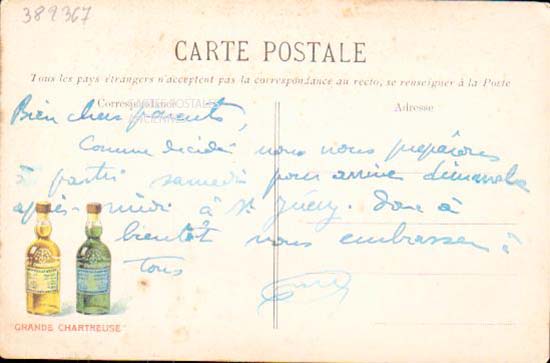 389367
CARTE POSTALE
Tous les pays étrangers n'acceptent pas la correspondance au recto, se renseigner à la Poste
Correspondance
Adresse
CARTES POSTALES
ANCIENNES
Bien chers parents,
Comme décidé nous nous préparons
à partir samedi pour arriver dimanche
après-midi à St Juéry. Donc à
bientôt nous embrassons
tous
"GRANDE CHARTREUSE"